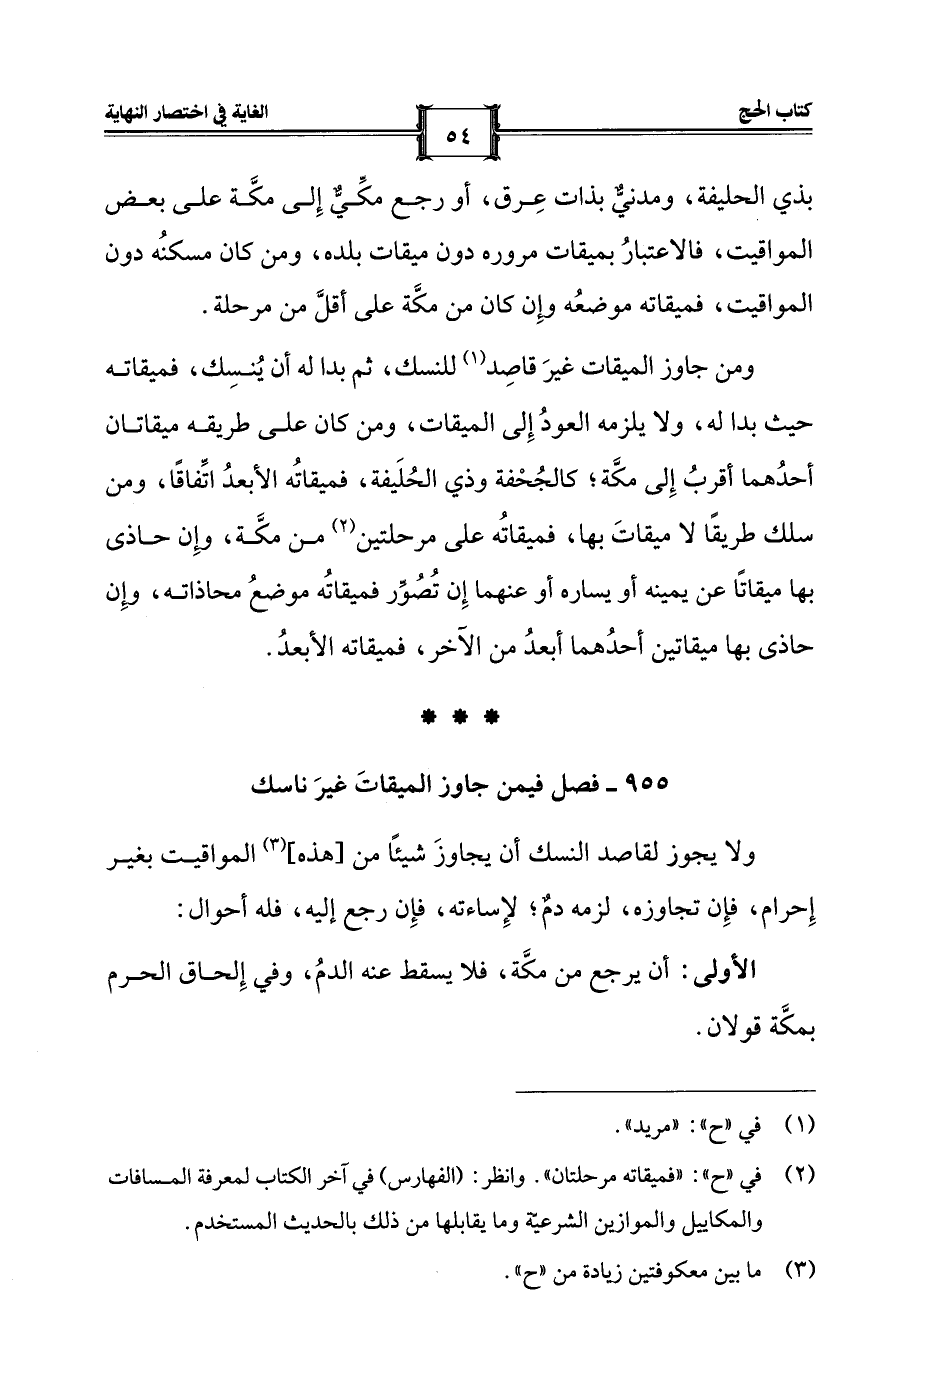 كتاب الحج
٥٤
الغاية في اختصار النهاية
بذي الحليفة، ومدنيٌّ بذات عِرق، أو رجع مكِّيٌّ إلى مكَّة على بعض
المواقيت، فالاعتبارُ بميقات مروره دون ميقات بلده، ومن كان مسكنُه دون
المواقيت، فميقاته موضعُه وإن كان من مكَّة على أقلَّ من مرحلة.
ومن جاوز الميقات غيرَ قاصِد(١) للنسك، ثم بدا له أن يُنسِك، فميقاته
حيث بدا له، ولا يلزمه العودُ إلى الميقات، ومن كان على طريقه ميقاتان
أحدُهما أقربُ إلى مكَّة؛ كالجُحْفة وذي الحُلَيفة، فميقاتُه الأبعدُ اتِّفاقًا، ومن
سلك طريقًا لا ميقاتَ بها، فميقاتُه على مرحلتين(٢) من مكَّة، وإن حاذى
بها ميقاتًا عن يمينه أو يساره أو عنهما إن تُصُوِّر فميقاتُه موضعُ محاذاته، وإن
حاذى بها ميقاتين أحدُهما أبعدُ من الآخر، فميقاته الأبعدُ.
* * *
٩٥٥ - فصل فيمن جاوز الميقاتَ غيرَ ناسك
ولا يجوز لقاصد النسك أن يجاوزَ شيئًا من [هذه](٣) المواقيت بغير
إحرام، فإن تجاوزه، لزمه دمٌ؛ لإساءته، فإن رجع إليه، فله أحوال:
الأولى: أن يرجع من مكَّة، فلا يسقط عنه الدمُ، وفي إلحاق الحرم
بمكَّة قولان.
(١) في «ح»: «مريد».
(٢) في «ح»: «فميقاته مرحلتان». وانظر: (الفهارس) في آخر الكتاب لمعرفة المسافات
والمكاييل والموازين الشرعيّة وما يقابلها من ذلك بالحديث المستخدم.
(٣) ما بين معكوفتين زيادة من «ح».